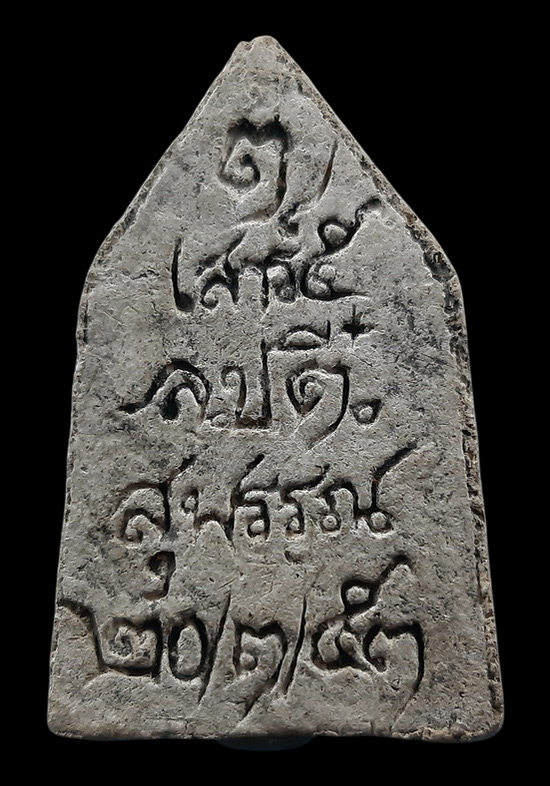 ๓/
เสาร์๕
ลป.ตี๋
สุพรรณ
๒๐/๓/๕๓